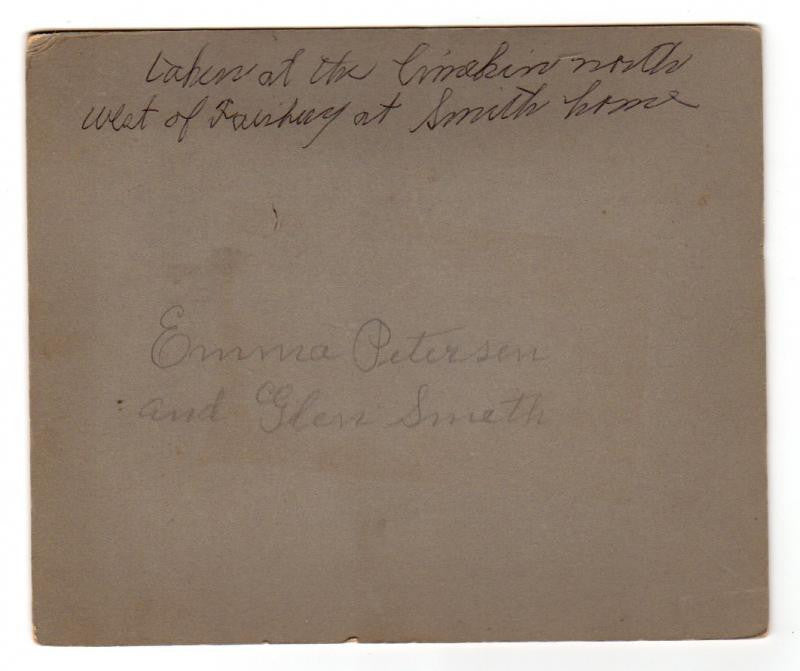 taken at the limekiln north
west of Fairbury at Smith home
Emma Petersen
and Glen Smith